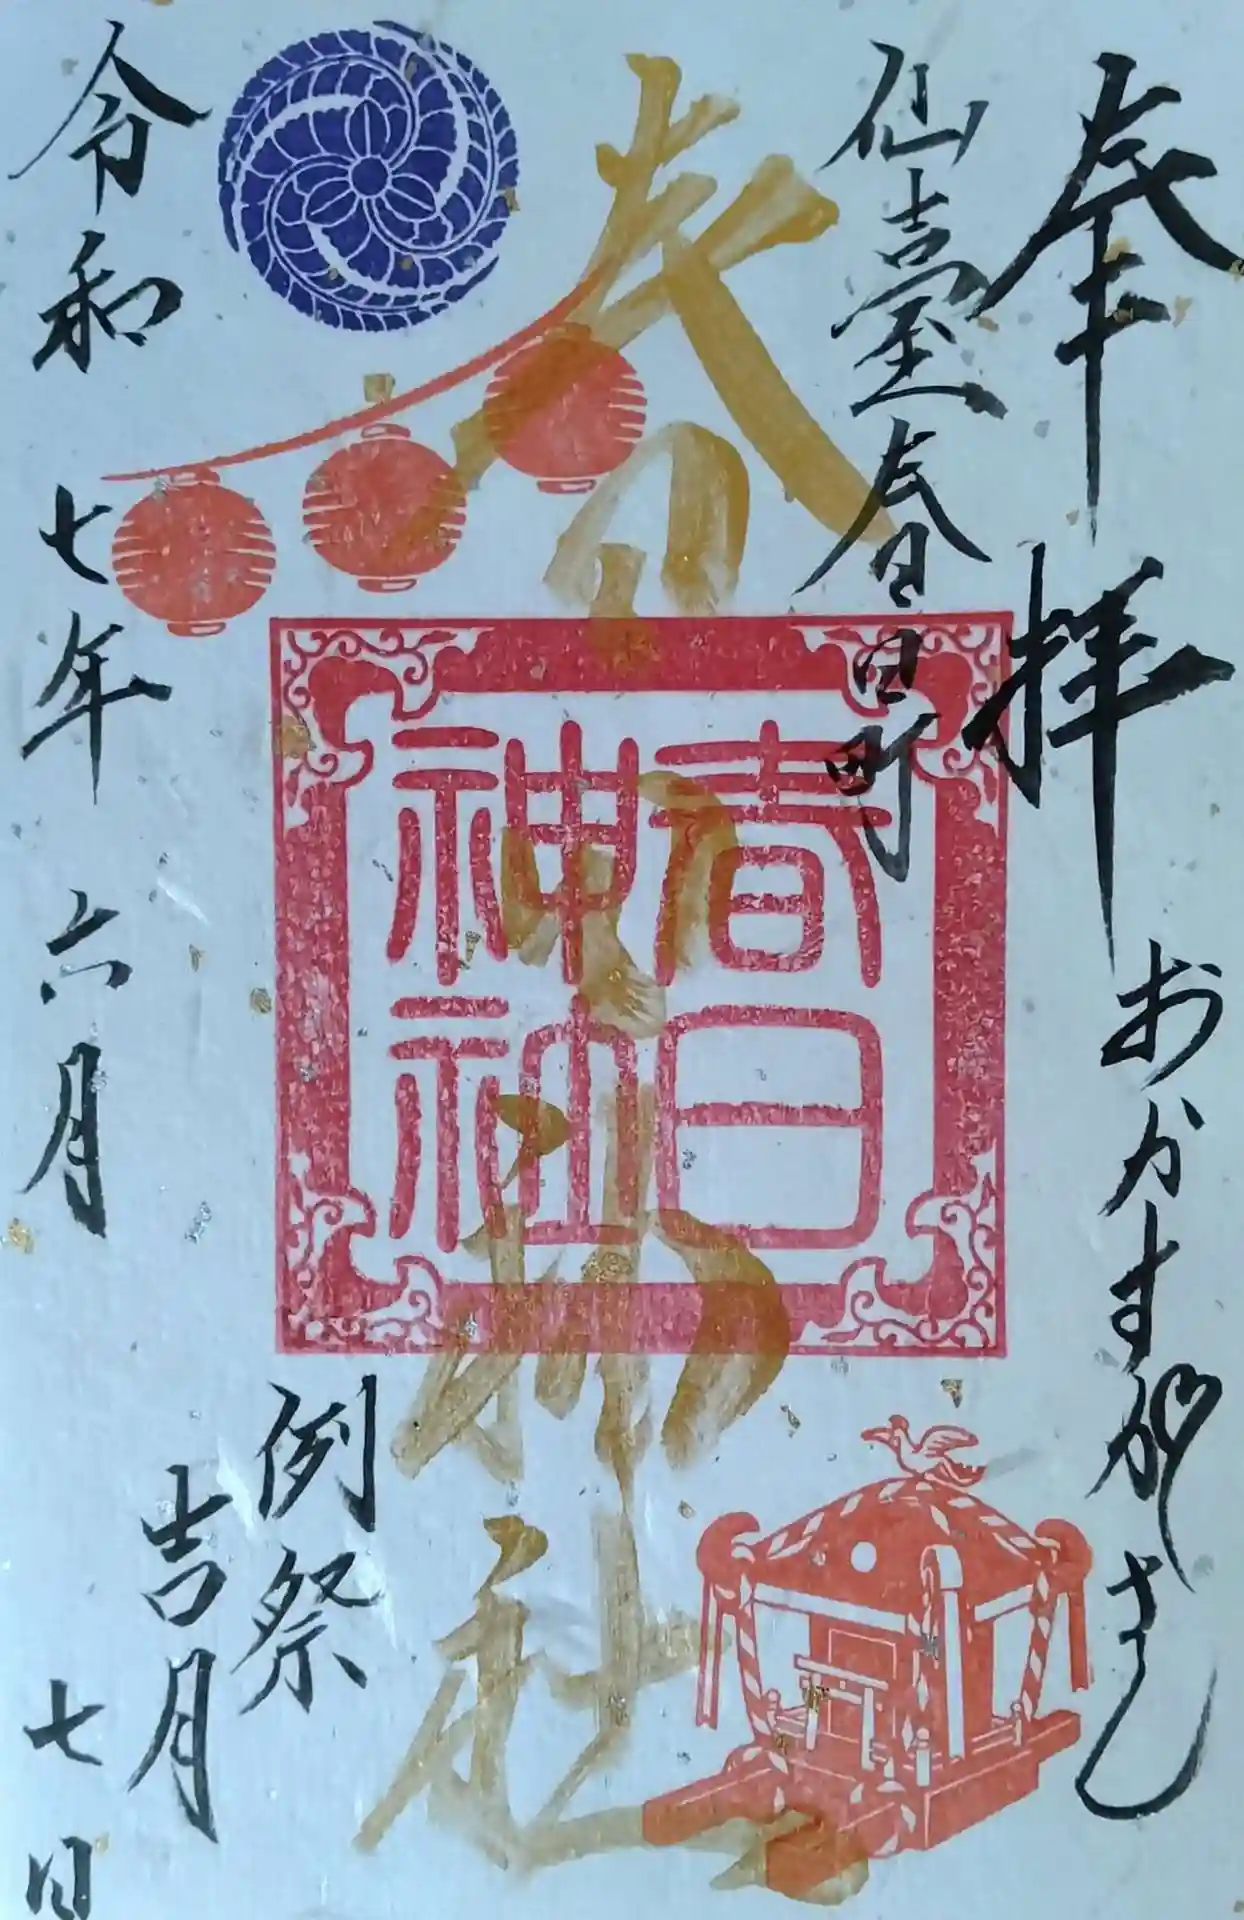 奉拝
おかすがさん
仙臺春日町
春日神社
春日
神社
例祭
吉月
令和七年六月七日